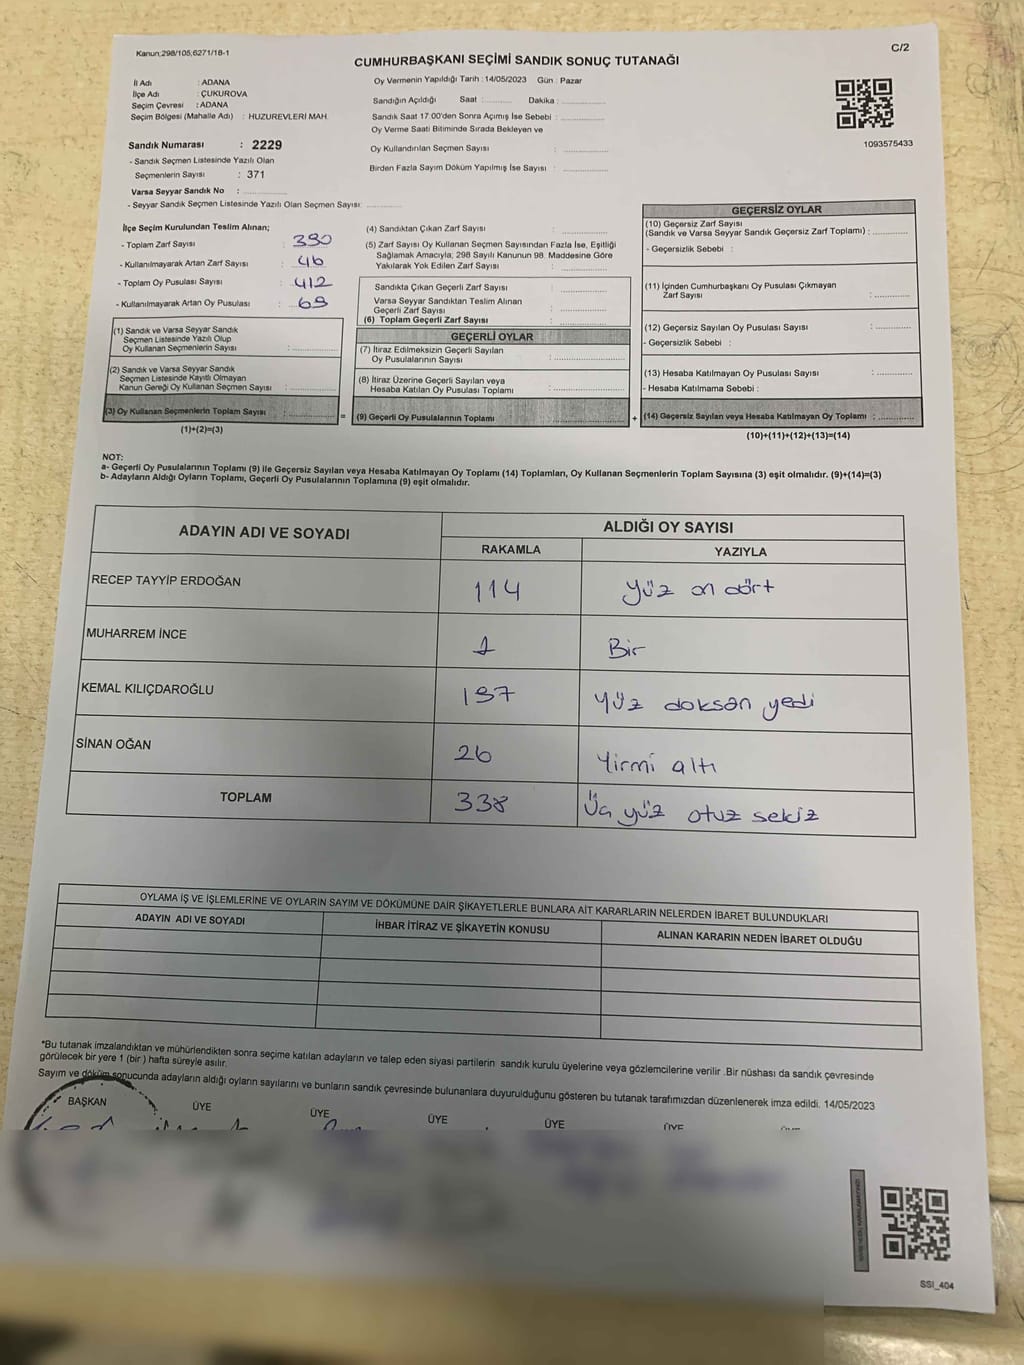 Kanun:298/105,6271/18-1
C/2
CUMHURBAŞKANI SEÇİMİ SANDIK SONUÇ TUTANAĞI
İl Adı : ADANA
İlçe Adı : ÇUKUROVA
Seçim Çevresi : ADANA
Seçim Bölgesi (Mahalle Adı) : HUZUREVLERİ MAH.
Oy Vermenin Yapıldığı Tarih : 14/05/2023 Gün : Pazar
Sandığın Açıldığı Saat : Dakika :
Sandık Saat 17:00'den Sonra Açımış İse Sebebi :
Oy Verme Saati Bitiminde Sırada Bekleyen ve
Oy Kullandırılan Seçmen Sayısı :
Birden Fazla Sayım Döküm Yapılmış İse Sayısı :
1093575433
Sandık Numarası : 2229
- Sandık Seçmen Listesinde Yazılı Olan
Seçmenlerin Sayısı : 371
Varsa Seyyar Sandık No :
- Seyyar Sandık Seçmen Listesinde Yazılı Olan Seçmen Sayısı:
İlçe Seçim Kurulundan Teslim Alınan;
- Toplam Zarf Sayısı : 390
- Kullanılmayarak Artan Zarf Sayısı : 46
- Toplam Oy Pusulası Sayısı : 412
- Kullanılmayarak Artan Oy Pusulası : 69
(1) Sandık ve Varsa Seyyar Sandık
Seçmen Listesinde Yazılı Olup
Oy Kullanan Seçmenlerin Sayısı :
(2) Sandık ve Varsa Seyyar Sandık
Seçmen Listesinde Kayıtlı Olmayan
Kanun Gereği Oy Kullanan Seçmen Sayısı :
(3) Oy Kullanan Seçmenlerin Toplam Sayısı :
(1)+(2)=(3)
(4) Sandıktan Çıkan Zarf Sayısı :
(5) Zarf Sayısı Oy Kullanan Seçmen Sayısından Fazla İse, Eşitliği
Sağlamak Amacıyla, 298 Sayılı Kanunun 98. Maddesine Göre
Yakılarak Yok Edilen Zarf Sayısı :
Sandıkta Çıkan Geçerli Zarf Sayısı :
Varsa Seyyar Sandıktan Teslim Alınan
Geçerli Zarf Sayısı :
(6) Toplam Geçerli Zarf Sayısı :
GEÇERLİ OYLAR
(7) İtiraz Edilmeksizin Geçerli Sayılan
Oy Pusulalarının Sayısı :
(8) İtiraz Üzerine Geçerli Sayılan veya
Hesaba Katılan Oy Pusulası Toplamı :
= (9) Geçerli Oy Pusulalarının Toplamı :
GEÇERSİZ OYLAR
(10) Geçersiz Zarf Sayısı
(Sandık ve Varsa Seyyar Sandık Geçersiz Zarf Toplamı) :
- Geçersizlik Sebebi :
(11) İçinden Cumhurbaşkanı Oy Pusulası Çıkmayan
Zarf Sayısı :
(12) Geçersiz Sayılan Oy Pusulası Sayısı :
- Geçersizlik Sebebi :
(13) Hesaba Katılmayan Oy Pusulası Sayısı :
- Hesaba Katılmama Sebebi :
+ (14) Geçersiz Sayılan veya Hesaba Katılmayan Oy Toplamı :
(10)+(11)+(12)+(13)=(14)
NOT:
a- Geçerli Oy Pusulalarının Toplamı (9) ile Geçersiz Sayılan veya Hesaba Katılmayan Oy Toplamı (14) Toplamları, Oy Kullanan Seçmenlerin Toplam Sayısına (3) eşit olmalıdır. (9)+(14)=(3)
b- Adayların Aldığı Oyların Toplamı, Geçerli Oy Pusulalarının Toplamına (9) eşit olmalıdır.
ADAYIN ADI VE SOYADI ALDIĞI OY SAYISI
RAKAMLA YAZIYLA
RECEP TAYYİP ERDOĞAN 114 Yüz on dört
MUHARREM İNCE 1 Bir
KEMAL KILIÇDAROĞLU 197 Yüz doksan yedi
SİNAN OĞAN 26 Yirmi altı
TOPLAM 338 Üç yüz otuz sekiz
OYLAMA İŞ VE İŞLEMLERİNE VE OYLARIN SAYIM VE DÖKÜMÜNE DAİR ŞİKAYETLERLE BUNLARA AİT KARARLARIN NELERDEN İBARET BULUNDUKLARI
ADAYIN ADI VE SOYADI İHBAR İTİRAZ VE ŞİKAYETİN KONUSU ALINAN KARARIN NEDEN İBARET OLDUĞU
*Bu tutanak imzalandıktan ve mühürlendikten sonra seçime katılan adayların ve talep eden siyasi partilerin sandık kurulu üyelerine veya gözlemcilerine verilir .Bir nüshası da sandık çevresinde
görülecek bir yere 1 (bir ) hafta süreyle asılır.
Sayım ve döküm sonucunda adayların aldığı oyların sayılarını ve bunların sandık çevresinde bulunanlara duyurulduğunu gösteren bu tutanak tarafımızdan düzenlenerek imza edildi. 14/05/2023
BAŞKAN ÜYE ÜYE ÜYE ÜYE ÜYE
SSI_404